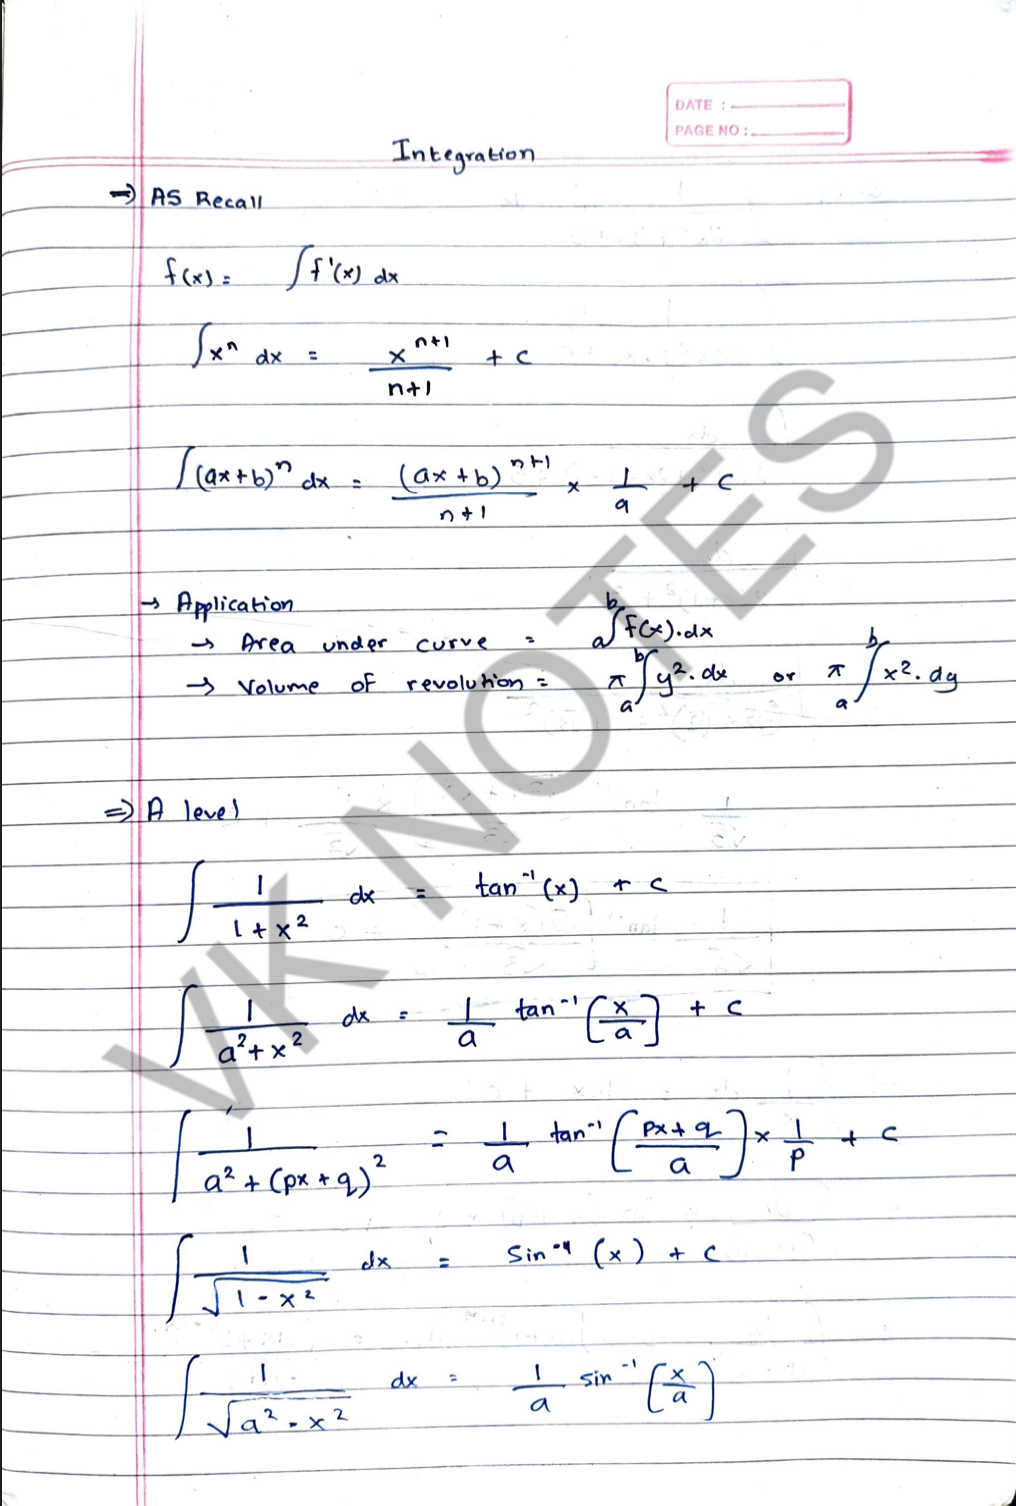 DATE :
PAGE NO :
Integration
⇒ AS Recall
f(x) = ∫f'(x) dx
∫xⁿ dx = x^(n+1) / (n+1) + c
∫(ax+b)ⁿ dx = (ax+b)^(n+1) / (n+1) × 1/a + c
→ Application
→ Area under curve = a∫b f(x).dx
→ Volume of revolution = π a∫b y². dx or π a∫b x². dy
⇒ A level
∫ 1/(1+x²) dx = tan⁻¹(x) + c
∫ 1/(a²+x²) dx = 1/a tan⁻¹[x/a] + c
∫ 1/(a²+(px+q)²) = 1/a tan⁻¹[(px+q)/a] × 1/p + c
∫ 1/√(1-x²) dx = Sin⁻¹(x) + c
∫ 1/√(a²-x²) dx = 1/a sin⁻¹[x/a]
VK NOTES